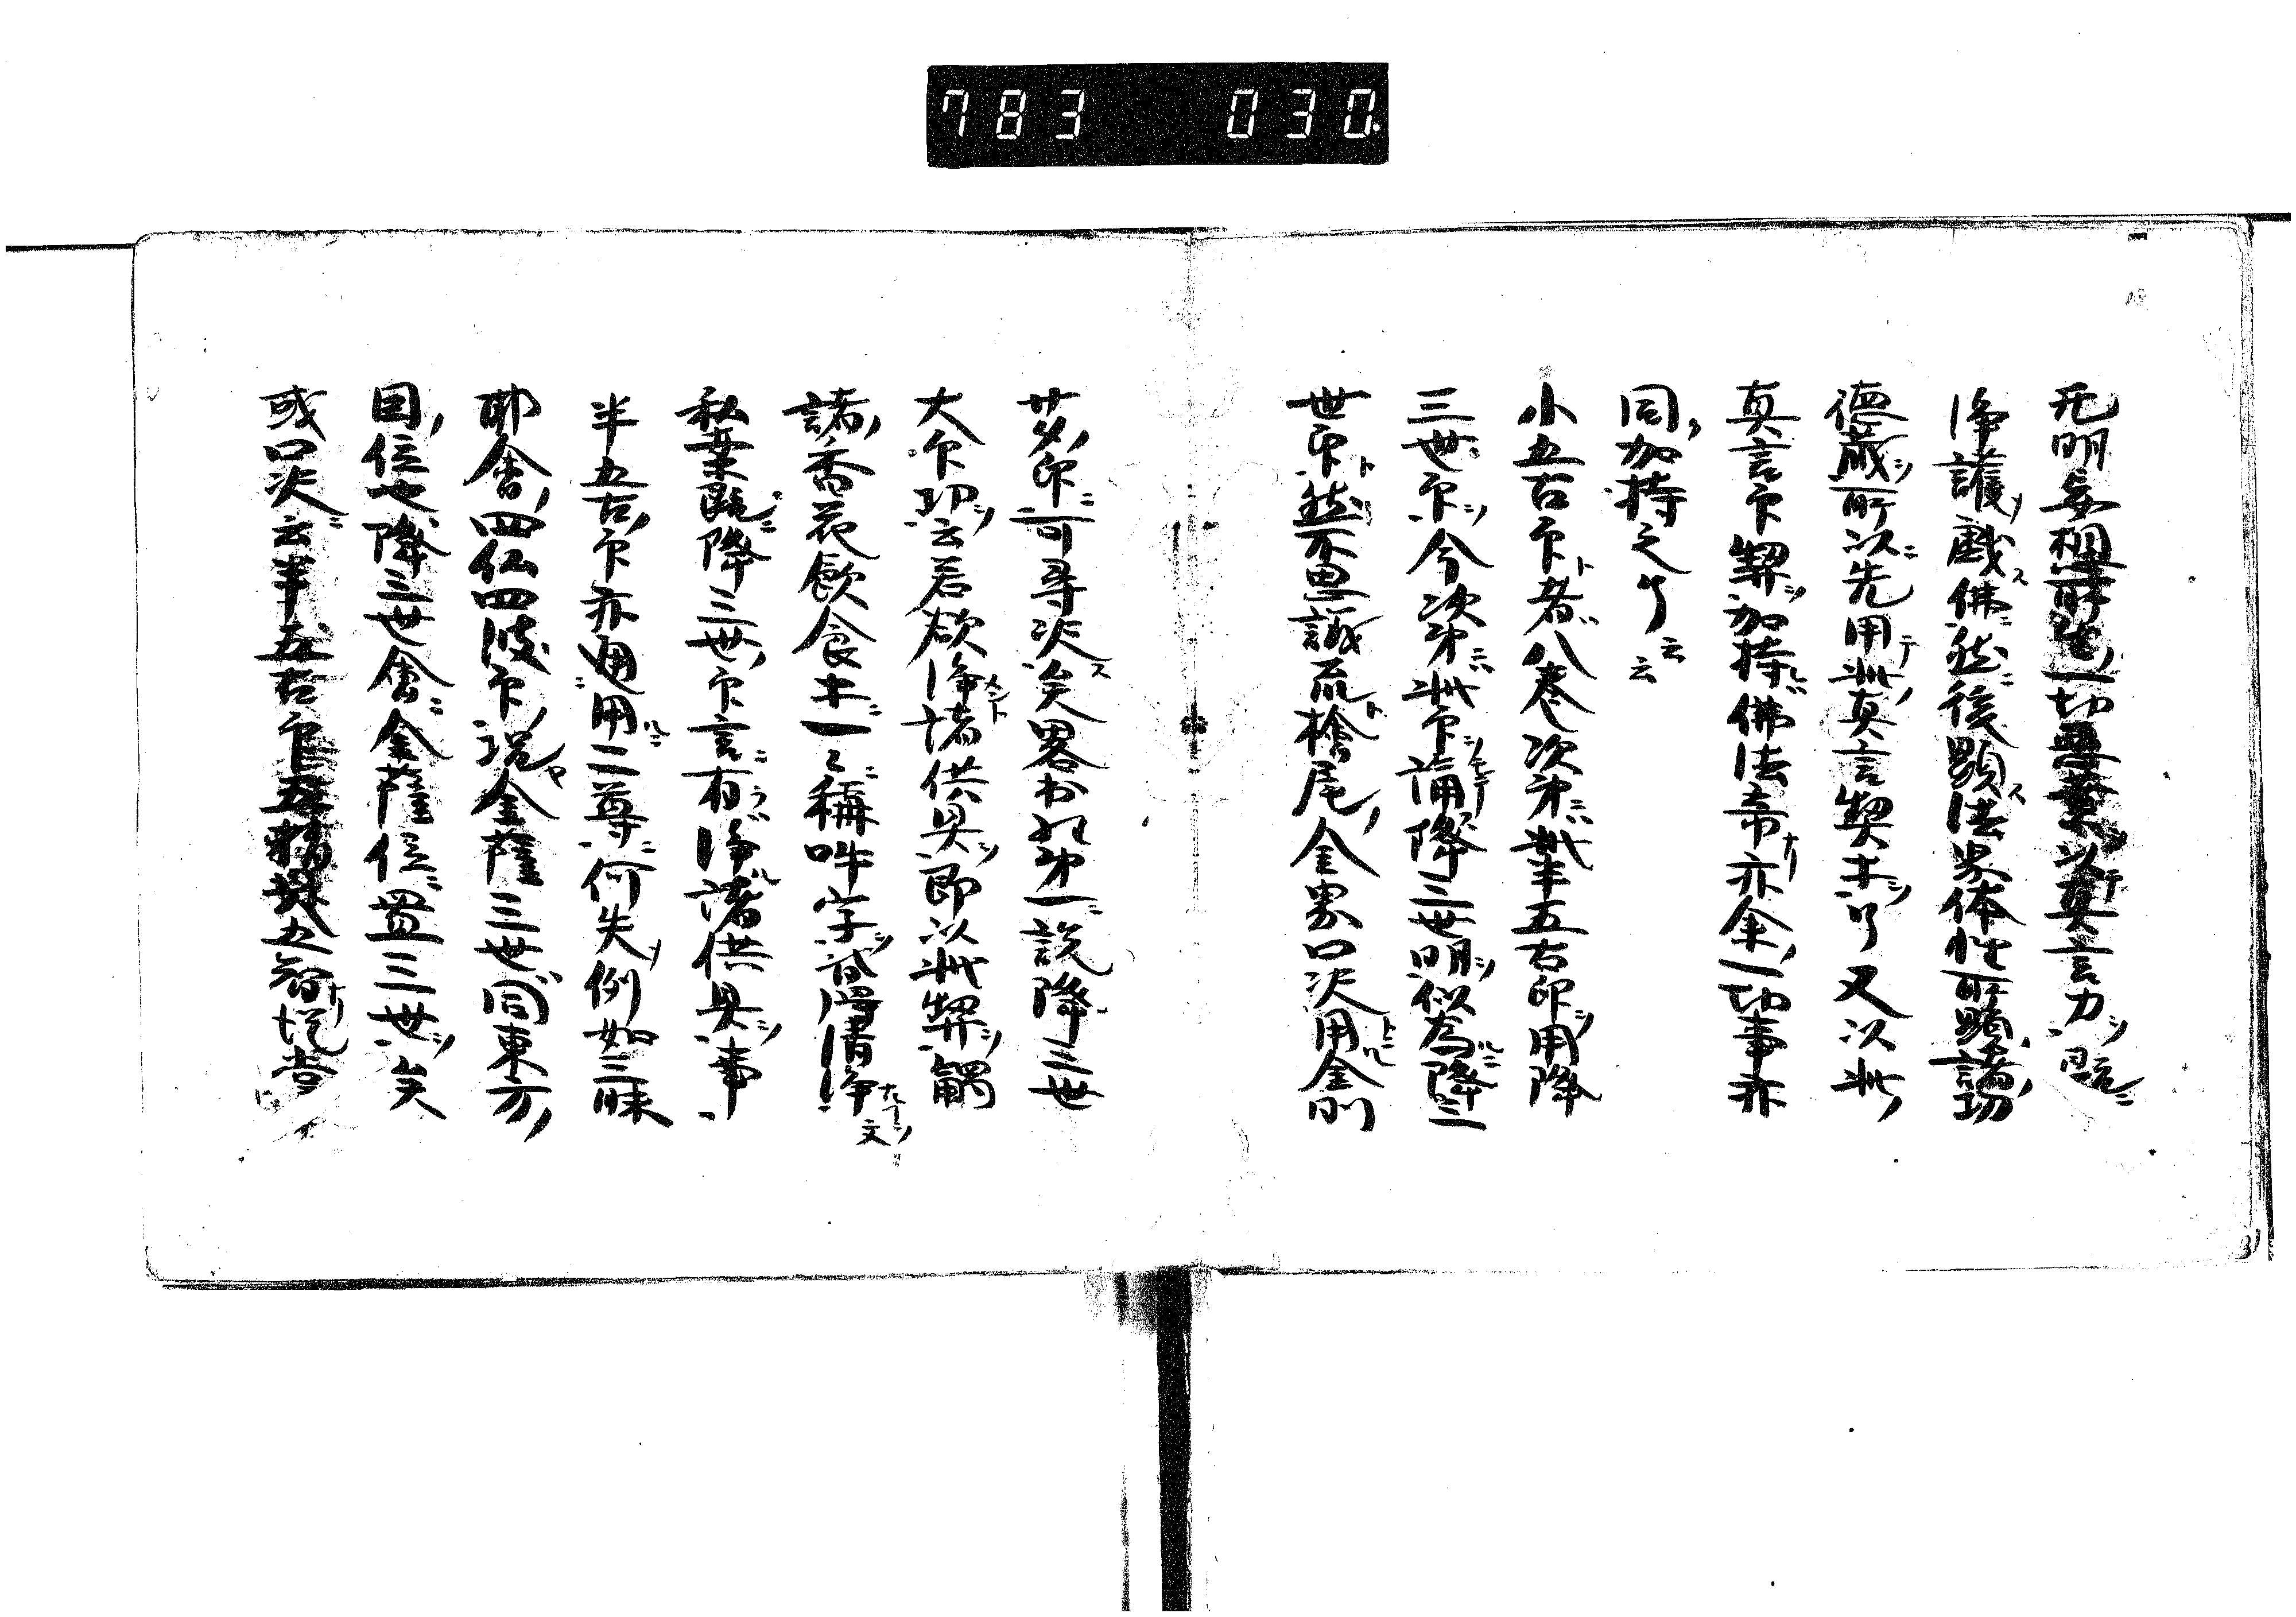 783 030
无明妄想所生一切悪業以真言力
浄護戯佛然後顕法界体性所願諸功
徳蔵所以先用此真言契木了又以此
真言印契加持佛法帝亦余一切事亦
同加持之了云云
小五古印者八巻次第此半五古印用降
三世印今次第此印誦降三世明似為降三
世印然不思議流檜尾金界口决用金剛
莎印可尋决矣畧出第一説降三世
大印功云若欲浄諸供具即以此契觸
諸香花飲食木一々稱吽字皆得清浄文
私案既降三世印言有浄諸供具事
半五古印亦通用二尊何失例如三昧
耶會四仏四波印況金薩三世同東方
因位也降三世會金薩位置三世矣
或口决云半五古印